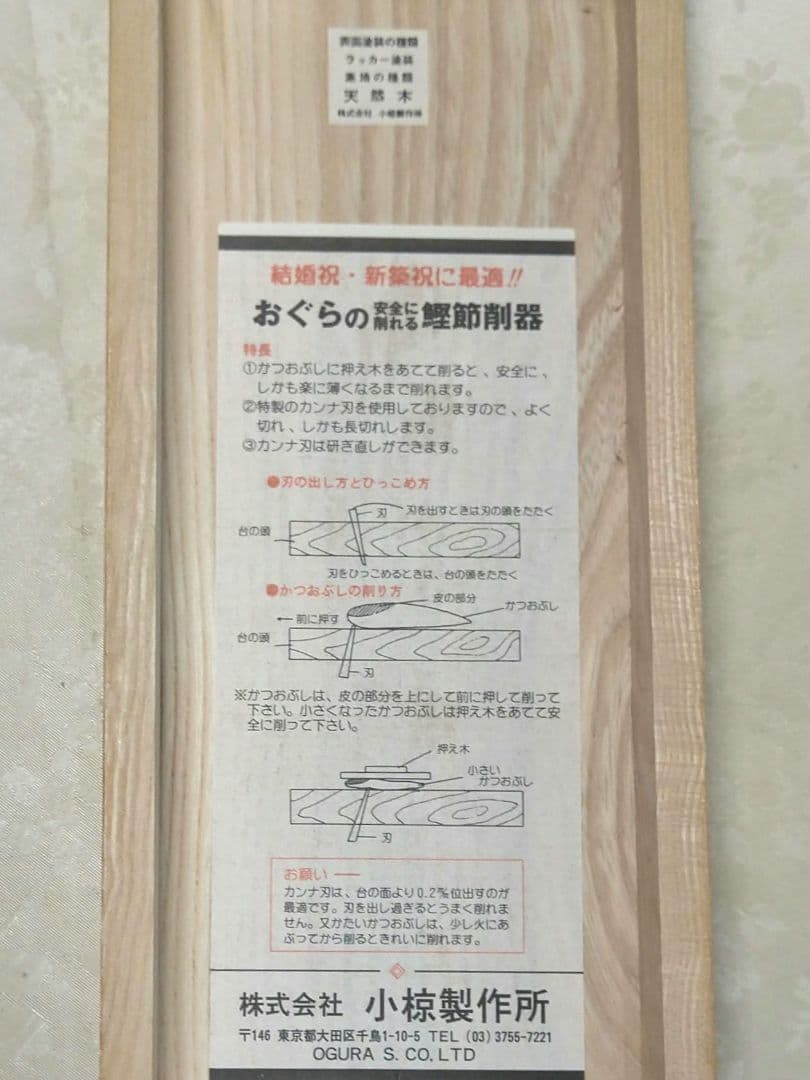 表面塗装の種類
ラッカー塗装
素地の種類
天然木
株式会社 小椋製作所
結婚祝・新築祝に最適!!
おぐらの安全に削れる鰹節削器
特長
①かつおぶしに押え木をあてて削ると、安全に、
しかも楽に薄くなるまで削れます。
②特製のカンナ刃を使用しておりますので、よく
切れ、しかも長切れします。
③カンナ刃は研ぎ直しができます。
●刃の出し方とひっこめ方
刃
刃を出すときは刃の頭をたたく
台の頭
刃をひっこめるときは、台の頭をたたく
●かつおぶしの削り方
皮の部分
かつおぶし
←前に押す
台の頭
刃
※かつおぶしは、皮の部分を上にして前に押して削って
下さい。小さくなったかつおぶしは押え木をあてて安
全に削って下さい。
押え木
小さい
かつおぶし
刃
お願い
カンナ刃は、台の面より0.2㎜位出すのが
最適です。刃を出し過ぎるとうまく削れま
せん。又かたいかつおぶしは、少し火にあ
ぶってから削るときれいに削れます。
株式会社 小椋製作所
〒146 東京都大田区千鳥1-10-5 TEL (03) 3755-7221
OGURA S. CO, LTD